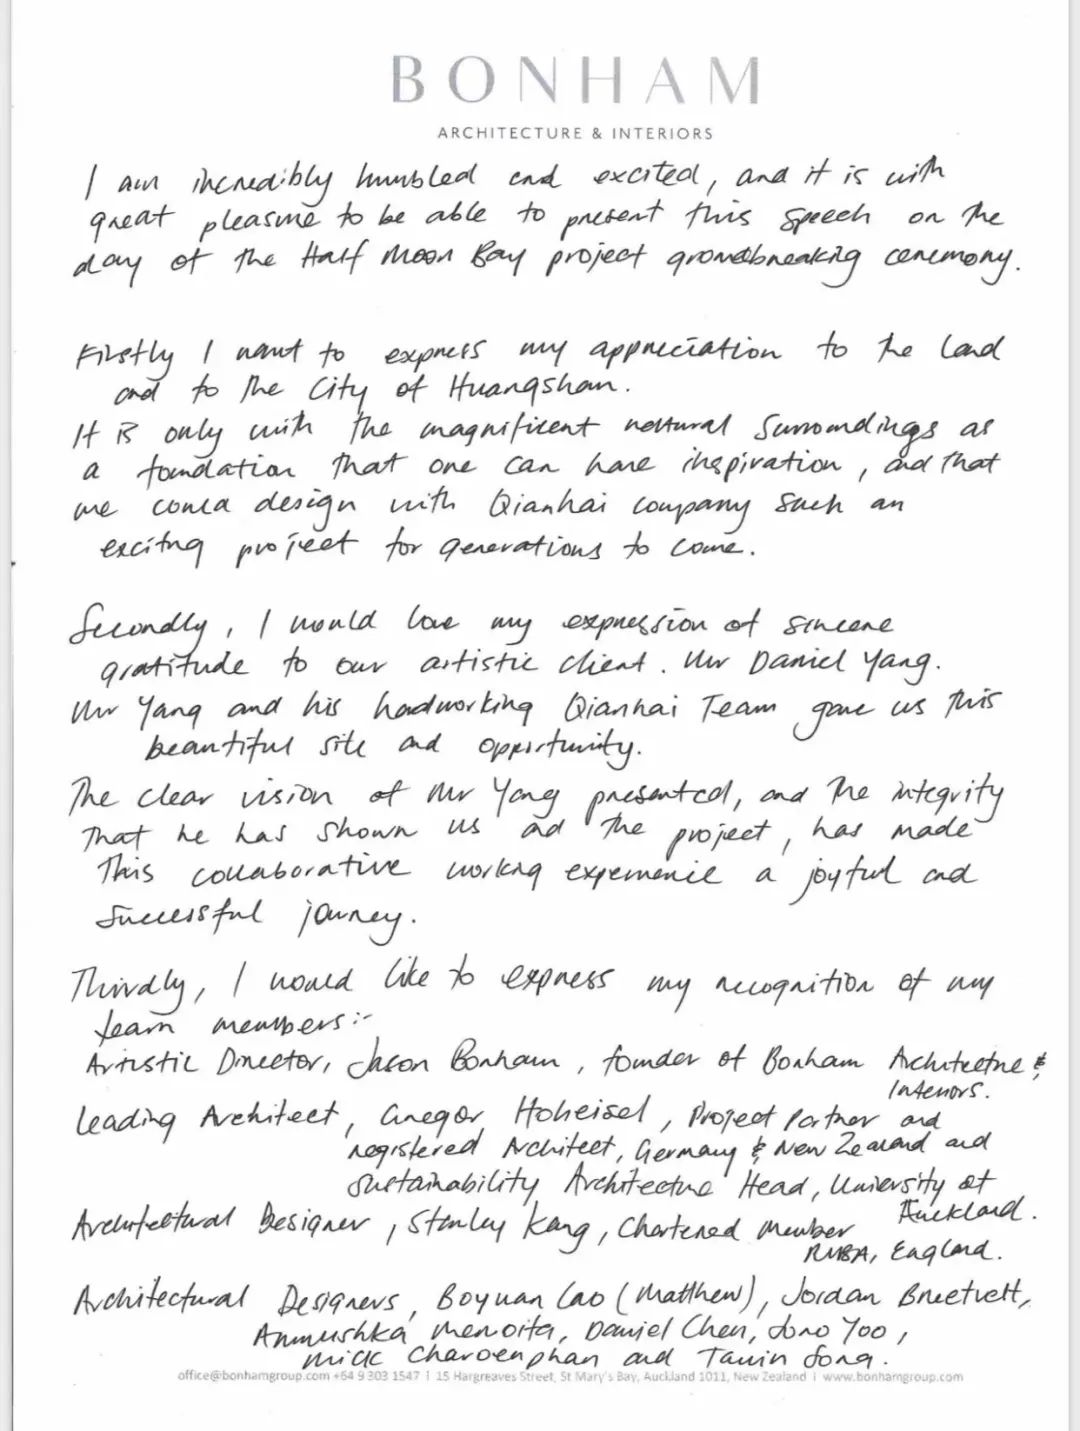 BONHAM
ARCHITECTURE & INTERIORS
I am incredibly humbled and excited, and it is with
great pleasure to be able to present this speech on the
day of the Half Moon Bay project groundbreaking ceremony.
Firstly I want to express my appreciation to the land
and to the City of Huangshan.
It is only with the magnificent natural surroundings as
a foundation that one can have inspiration, and that
we could design with Qianhai company such an
exciting project for generations to come.
Secondly, I would love my expression of sincere
gratitude to our artistic client. Mr Daniel Yang.
Mr Yang and his hadworking Qianhai Team gave us this
beautiful site and opportunity.
The clear vision of Mr Yang presented, and the integrity
that he has shown us and the project, has made
this collaborative working experience a joyful and
successful journey.
Thirdly, I would like to express my recognition of my
team members:-
Artistic Director, Jason Bonham, founder of Bonham Architecture &
Interiors.
Leading Architect, Gregor Hoheisel, Project Partner and
registered Architect, Germany & New Zealand and
sustainability Architecture Head, University of
Auckland.
Architectural Designer, Stanley Kang, Chartered Member
RIBA, England.
Architectural Designers, Boyuan Cao (Matthew), Jordan
Annushka Daniel Chen, Jono Yoo,
Mick Charoenphan and Tawin
office@bonhamgroup.com +64 9 303 1547 | 15 Hargreaves Street, St Mary's Bay, Auckland 1011, New Zealand | www.bonhamgroup.com